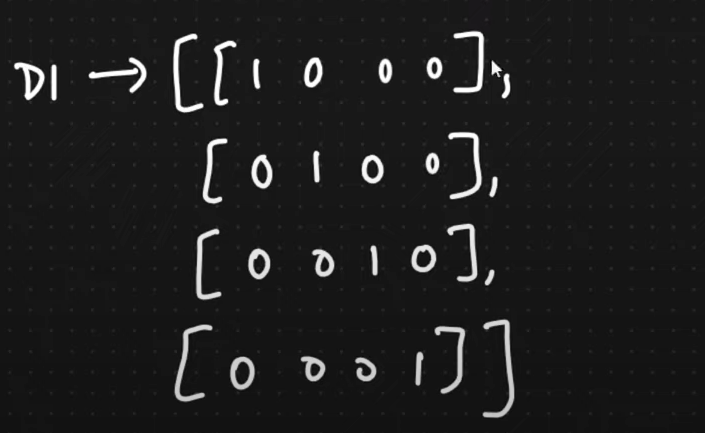 D1 → [[1 0 0 0],
[0 1 0 0],
[0 0 1 0],
[0 0 0 1]]